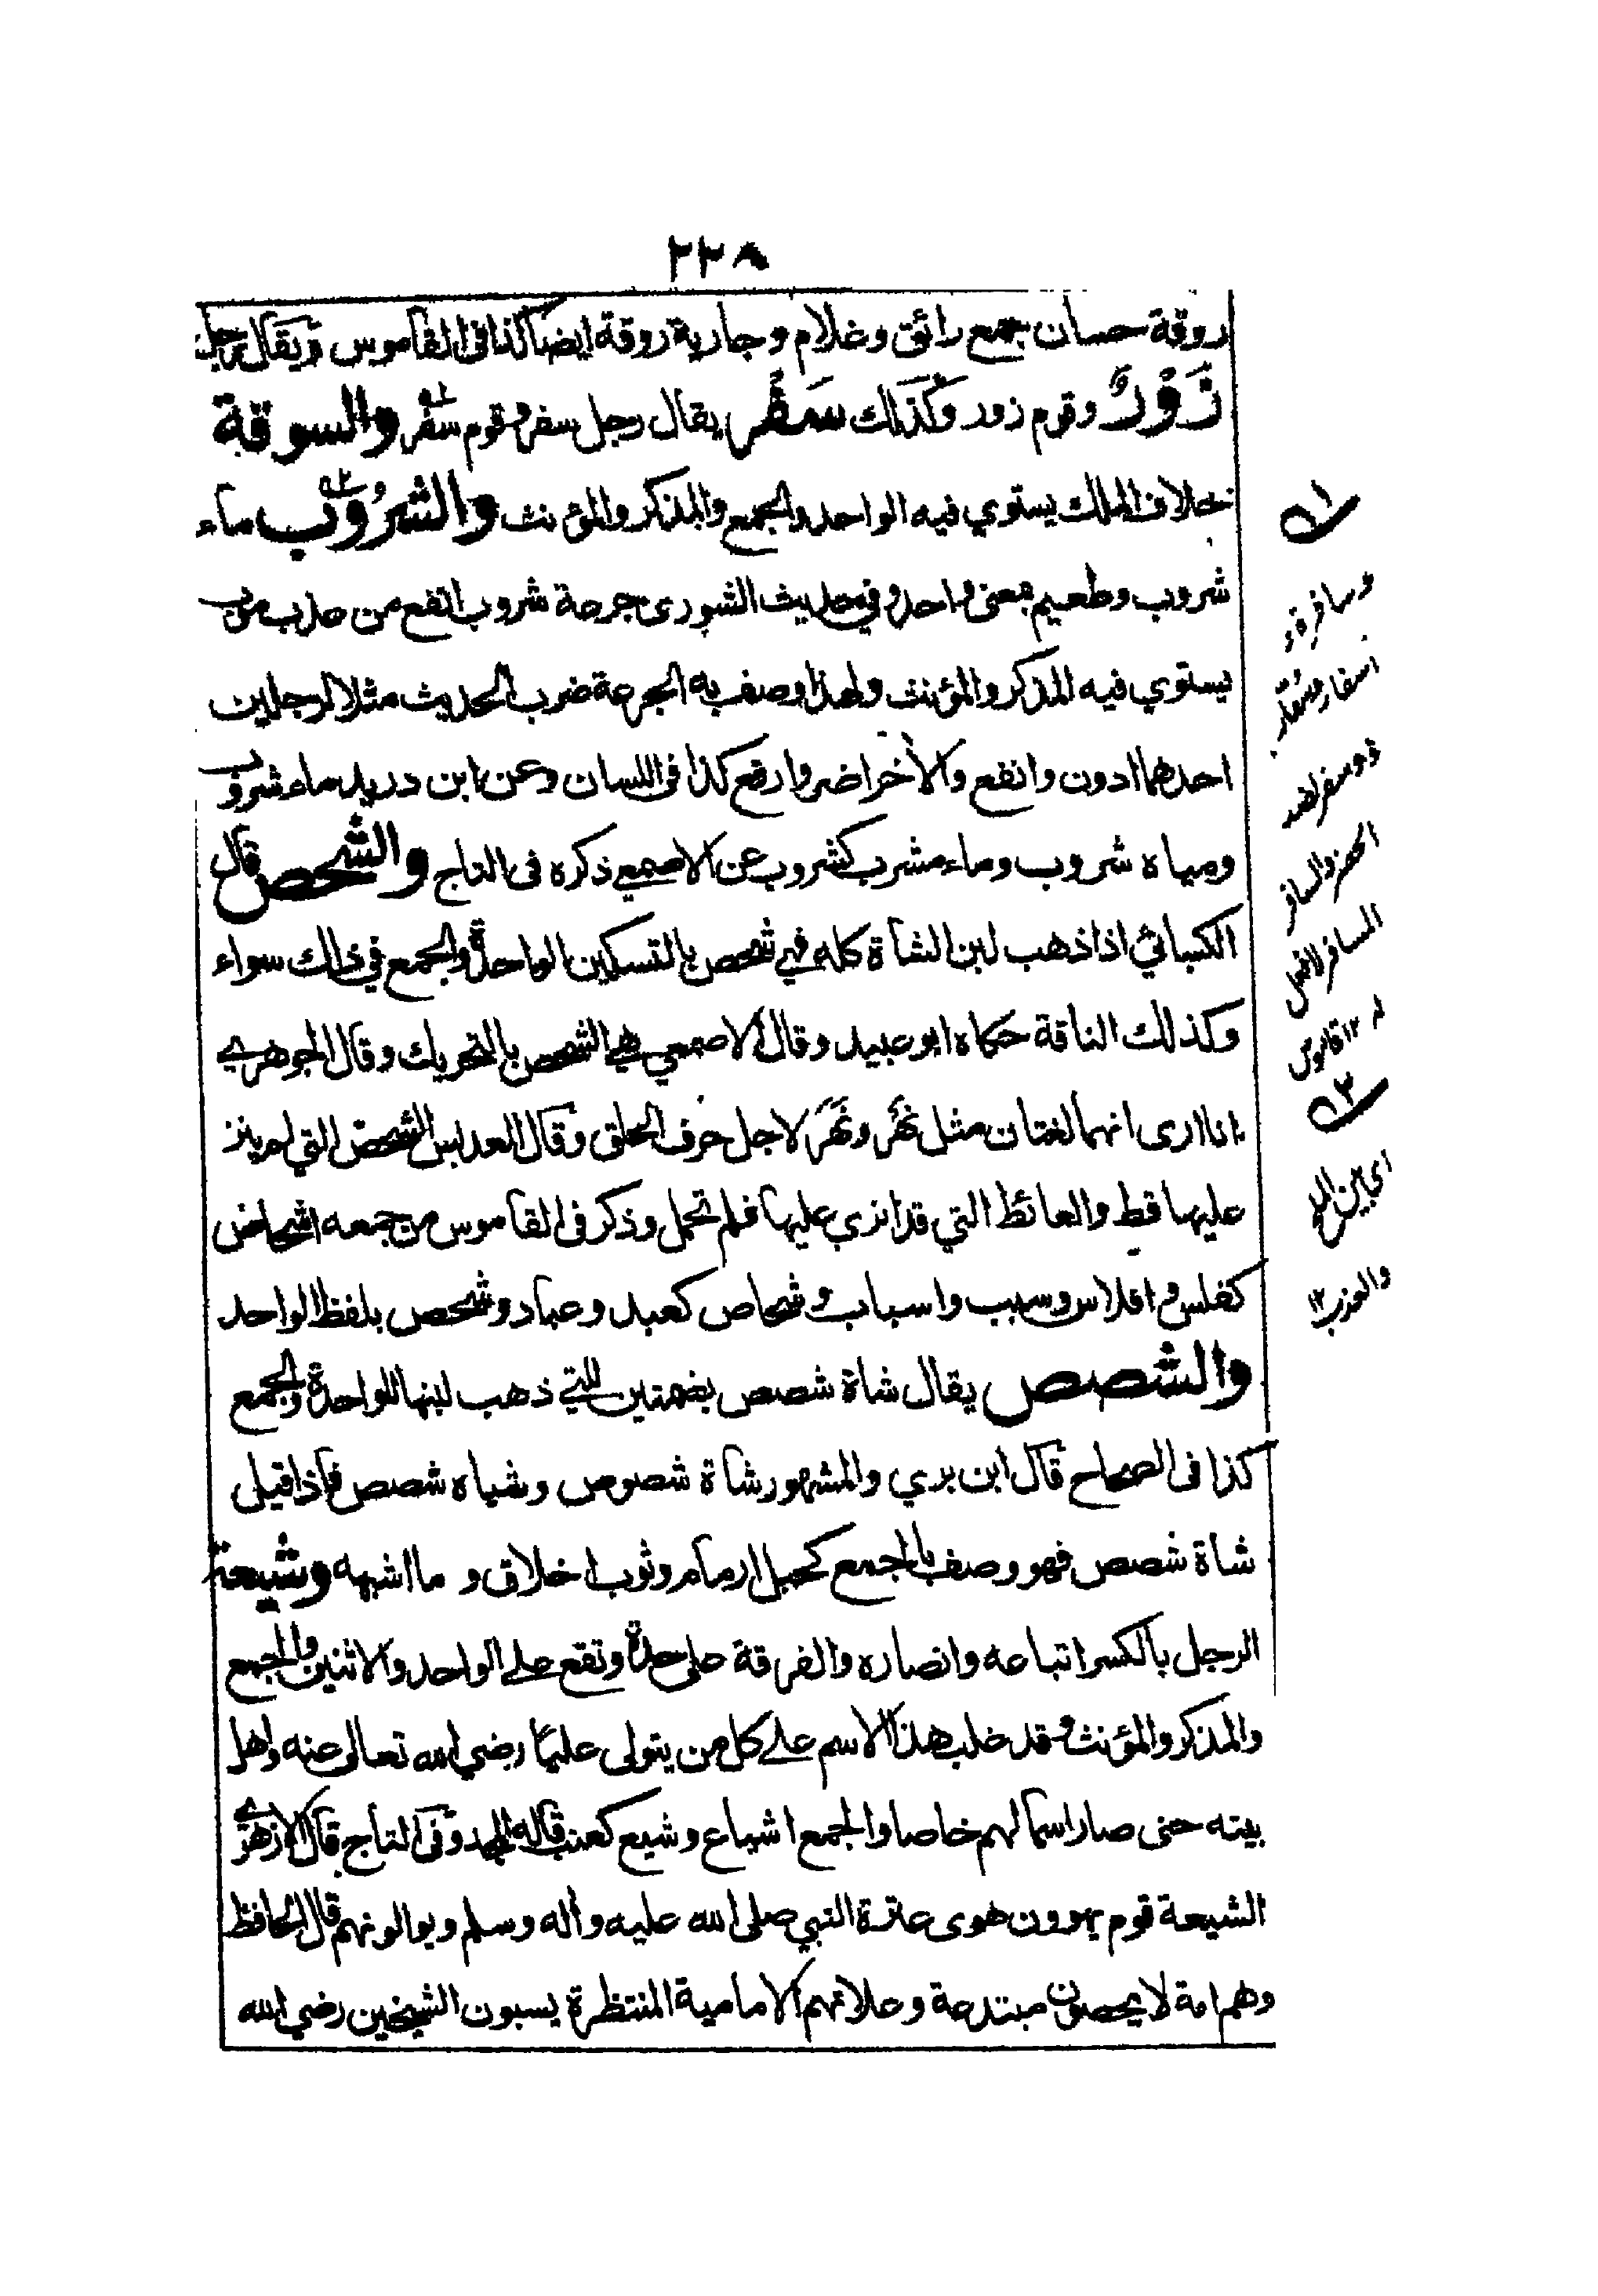 ٢٢٨
روقة حسان جمع رائق وغلام وجارية روقة ايضا كذا فى القاموس ويقال رجل
زَوْرٌ وقوم زور وكذلك سَفْر يقال رجل سفر وقوم سفر والسوقة
خلاف الملك يستوي فيه الواحد والجمع والمذكر والمؤنث والشَرُوْب ماء
شروب وطعيم بمعنى واحد وفي حديث الشورى جرعة شروب انفع من عذب موب
يستوي فيه المذكر والمؤنث ولهذا وصف به الجرعة ضرب الحديث مثلا لرجلين
احدهما ادون وانفع والأخر اضر وارفع كذا فى اللسان وعن ابن دريد ماء شروب
ومياه شروب وماء مشرب كشروب عن الاصمعي ذكره فى التاج والشَّحص قال
الكسائي اذا ذهب لبن الشاة كله فهي شحص بالتسكين الواحدة والجمع في ذلك سواء
وكذلك الناقة حكاه ابو عبيد وقال الاصمعي هي الشحص بالتحريك وقال الجوهري
انا ارى انهما لغتان مثل نَهْر ونَهَر لاجل حرف الحلق وقال العدبس الشحص التي لم ينز
عليها قط والعائط التي قد انزي عليها فلم تحمل وذكر فى القاموس من جمعه اشحاص
كفلس وافلاس وسبب واسباب وشحاص كعبد وعباد وشحص بلفظ الواحد
والشصص يقال شاة شصص بضمتين للتي ذهب لبنها للواحدة والجمع
كذا فى الصحاح قال ابن بري والمشهور شاة شصوص وشياه شصص فاذا قيل
شاة شصص فهو وصف بالجمع كحبل ارمام وثوب اخلاق و ما اشبهه وشيعة
الرجل بالكسر اتباعه وانصاره والفرقة على حدة وتقع على الواحد والاثنين والجمع
والمذكر والمؤنث وقد غلب هذا الاسم على كل من يتولى عليًا رضي الله تعالى عنه واهل
بيته حتى صار اسما لهم خاصا والجمع اشياع وشيع كعنب قاله المجد وفى التاج قال الازهري
الشيعة قوم يهوون هوى عترة النبي صلى الله عليه وأله وسلم ويوالونهم قال الحافظ
وهم امة لا يحصون مبتدعة وغلاتهم الامامية المنتظرة يسبون الشيخين رضي الله
١
وسافرة و
اسفار وسُفّار
ذو سفر لضد
الحضر والسافر
المسافر لا فعل
له ١٢ قاموس
٢
اي بين الملح
والعذب ١٢